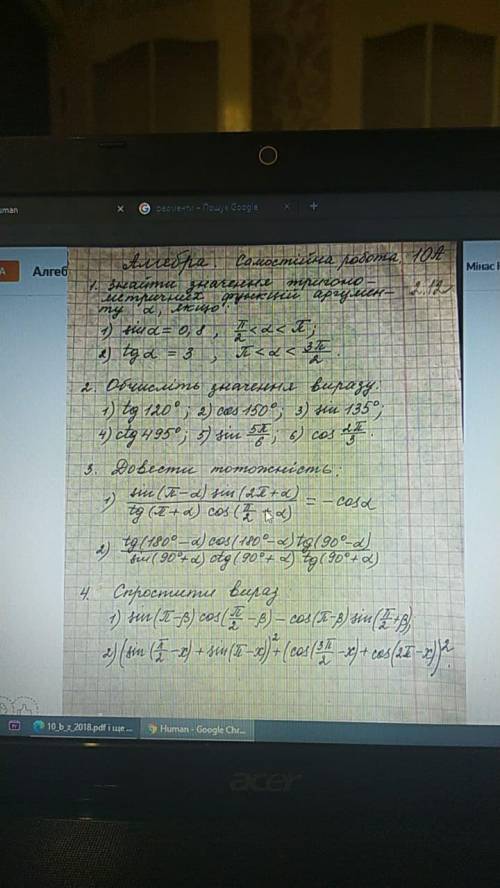 uman
× G ферменти – Пошук Google × +
А Алгеб
Мінас
Алгебра Самостійна робота 10А
2.12
1. Знайти значення тригоно
метричних функцій аргумен-
ту α, якщо:
1) sin α = 0,8 , π/2 < α < π;
2) tg α = 3 , π < α < 3π/2 .
2. Обчисліть значення виразу.
1) tg 120°; 2) cos 150°; 3) sin 135°;
4) ctg 495°; 5) sin 5π/6; 6) cos 2π/3.
3. Довести тотожність:
1) sin(π-α) sin(2π+α) / tg(π+α) cos(π/2+α) = -cos α
2) tg(180°-α) cos(180°-α) tg(90°-α) / sin(90°+α) ctg(90°+α) tg(90°+α)
4. Спростити вираз
1) sin(π-β) cos(π/2-β) - cos(π-β) sin(π/2+β)
2) (sin(π/2-x) + sin(π-x))² + (cos(3π/2-x) + cos(2π-x))².
10_b_z_2018.pdf і ще ...
Human - Google Chr...
acer